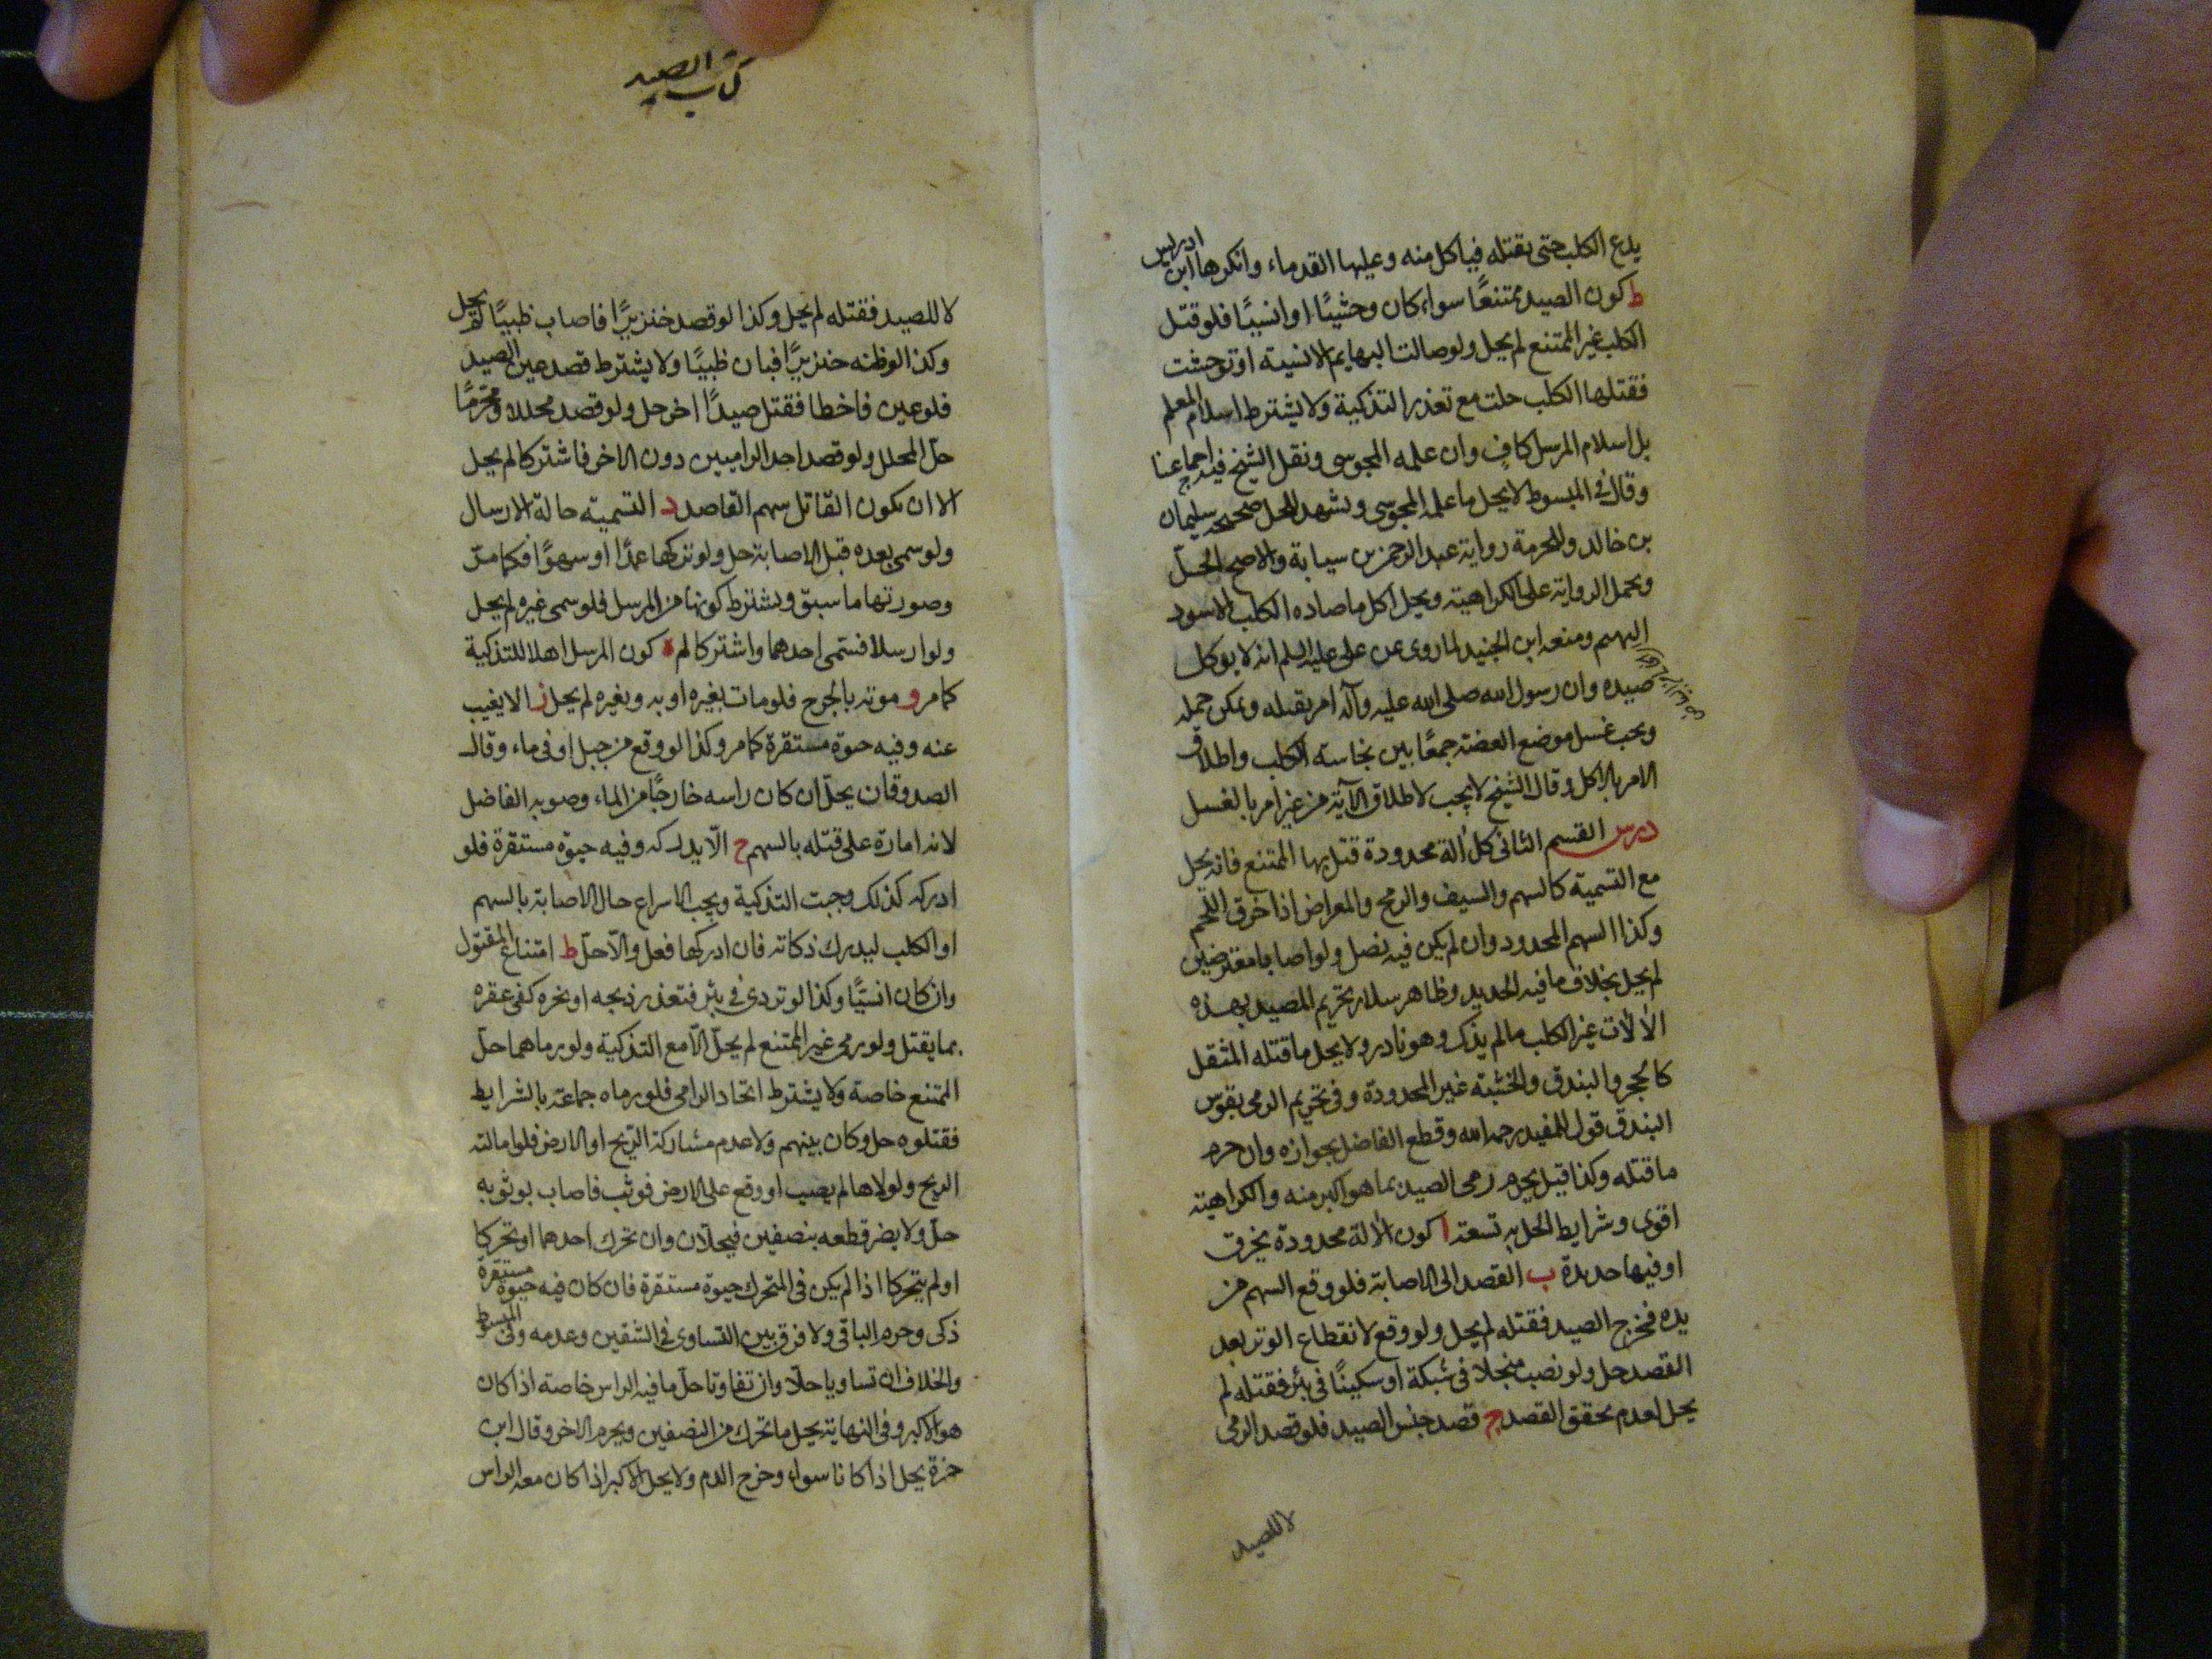 يدع الكلب حتى يقتله فياكل منه وعليها القدماء وانكرها ابن ادريس
ط كون الصيد ممتنعًا سواء كان وحشيًا او انسيًا فلو قتل
الكلب غير الممتنع لم يحل ولو صالت البهايم الانسية او توحشت
فقتلها الكلب حلت مع تعذر التذكية ولا يشترط اسلام المعلم
بل اسلام المرسل كافٍ وان علمه المجوسى ونقل الشيخ فيه اجماعنا
وقال فى المبسوط لا يحل ما علمه المجوسى ويشهد للحل صحيحة سليمان
بن خالد وللحرمة رواية عبد الرحمن بن سيابة والاصح الحلّ
وتحمل الرواية على الكراهية ويحل اكل ما صاده الكلب الاسود
البهيم ومنعه ابن الجنيد لما روى عن على عليه السلم انه لا يوكل
صيده وان رسول الله صلى الله عليه وآله امر بقتله ويمكن حمله
ويجب غسل موضع العضة جمعًا بين نجاسة الكلب واطلاق
الامر بالاكل وقال الشيخ لا يجب لاطلاق الآية من غير امر بالغسل
درس القسم الثانى كل آلة محدودة قتل بها الممتنع فانه يحل
مع التسمية كالسهم والسيف والرمح والمعراض اذا خرق اللحم
وكذا السهم المحدود وان لم يكن فيه نصل ولو اصابا معترضين
لم يحل بخلاف ما فيه الحديد وظاهر سلار تحريم المصيد بهذه
الآلات غير الكلب ما لم يذك وهو نادر ولا يحل ما قتله المثقل
كالحجر والبندق والخشبة غير المحدودة وفى تحريم الرمى بقوس
البندق قول للمفيد رحمه الله وقطع الفاضل بجوازه وان حرم
ما قتله وكذا قيل يحرم رمى الصيد بما هو اكبر منه والكراهية
اقوى وشرايط الحل به تسعة ا كون الآلة محدودة يخرق
او فيها حديدة ب القصد الى الاصابة فلو وقع السهم من
يده فخرج الصيد فقتله لم يحل ولو وقع لانقطاع الوتر بعد
القصد حل ولو نصب منجلا فى شبكة او سكينًا فى بئر فقتله لم
يحل لعدم تحقق القصد ج قصد جنس الصيد فلو قصد الرمى
لا للصيد
كتاب الصيد
لا للصيد فقتله لم يحل وكذا لو قصد خنزيرًا فاصاب ظبيًا لم يحل
وكذا لو ظنه خنزيرًا فبان ظبيًا ولا يشترط قصد عين الصيد
فلو عين فاخطا فقتل صيدًا اخر حل ولو قصد محللا ومحرمًا
حلّ المحلل ولو قصد احد الراميين دون الاخر فاشتركا لم يحل
الا ان يكون القاتل سهم القاصد د التسمية حالة الارسال
ولو سمى بعده قبل الاصابة حل ولو تركها عمدًا او سهوًا فكما مرّ
وصورتها ما سبق ويشترط كونها من المرسل فلو سمى غيره لم يحل
ولو ارسلا فسمى احدهما واشتركا لم ه كون المرسل اهلا للتذكية
كما مر و موته بالجرح فلو مات بغيره او به وبغيره لم يحل ز الا يغيب
عنه وفيه حيوة مستقرة كما مر وكذا لو وقع من جبل او فى ماء وقال
الصدوقان يحل ان كان راسه خارجًا من الماء وصوبه الفاضل
لانه امارة على قتله بالسهم ح الّا يدركه وفيه حيوة مستقرة فلو
ادركه كذلك وجبت التذكية ويجب الاسراع حال الاصابة بالسهم
او الكلب ليدرك ذكاته فان ادركها فعل والّا حلّ ط امتناع المقتول
وان كان انسيًا وكذا لو تردى فى بئر فتعذر ذبحه او نحره كفى عقره
بما يقتل ولو رمى غير الممتنع لم يحلّ الّا مع التذكية ولو رماهما حلّ
الممتنع خاصة ولا يشترط اتحاد الرامى فلو رماه جماعة بالشرايط
فقتلوه حل وكان بينهم ولا عدم مشاركة الريح او الارض فلو امالته
الريح ولولاها لم يصب او وقع على الارض فوثب فاصاب بوثوبه
حلّ ولا يضر قطعه بنصفين فيحلان وان تحرك احدهما او تحركا
او لم يتحركا اذا لم يكن فى المتحرك حيوة مستقرة فان كان فيه حيوة مستقرة
ذكى وحرم الباقى ولا فرق بين التساوى فى الشقين وعدمه وفى المبسوط
والخلاف ان تساويا حلّا وان تفاوتا حلّ ما فيه الراس خاصة اذا كان
هو الاكبر وفى النهاية يحل ما تحرك من النصفين ويحرم الاخر وقال ابن
حمزة يحل اذا كانا سواء وخرج الدم ولا يحل الاكبر اذا كان معه الراس